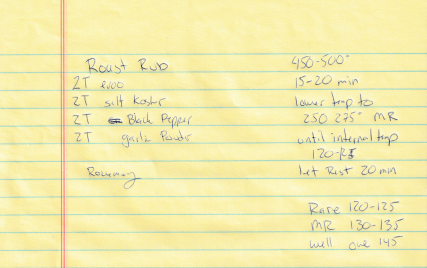 Roast Rub
2T evoo
2T salt Kosher
2T Black Pepper
2T garlic Powder
Rosemary
450-500°
15-20 min
lower temp to
250 275° MR
until internal temp
120-125
let Rest 20 min
Rare 120-125
MR 130-135
well over 145